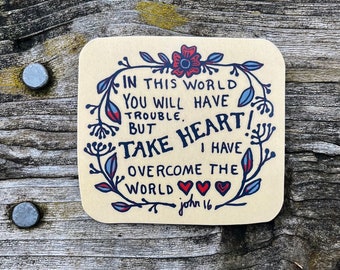 IN THIS WORLD
YOU WILL HAVE
TROUBLE,
BUT
TAKE HEART!
I HAVE
OVERCOME THE
WORLD
john 16